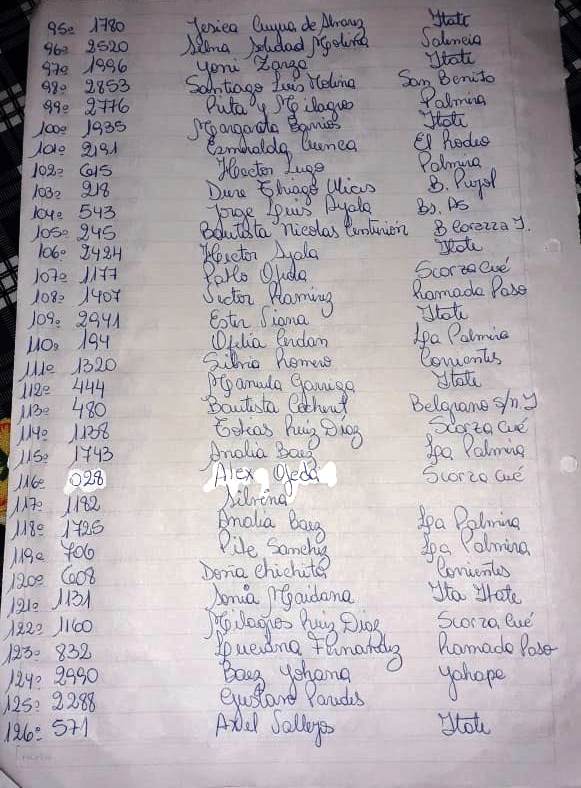 95º 1780 Yesica Cuyua de Alvarez Itati
96º 2520 Selma Soledad Molina Valencia
97º 1996 Yoni Zarza Itati
98º 2853 Santiago Luis Molina San Benito
99º 2776 Rita y Milagros Palmira
100º 1935 Margarita Barrios Itati
101º 2191 Esmeralda Cuenca El Rodeo
102º 615 Hector Lugo Palmira
103º 218 Dure Thiago B. Pujol
104º 543 Jorge Luis Ayala Bs. As
105º 245 Bautista Nicolas Centurión B
106º 2424 Hector Ayala Itati
107º 1177 Pablo Ojeda Scorza Cué
108º 1407 Victor Ramirez Ramada Paso
109º 2941 Ester Itati
110º 194 Ofelia Cerdan La Palmira
111º 1320 Silvia Romero Corrientes
112º 444 Manuela Itati
113º 480 Bautista Belgrano s/n. I
114º 1138 Ruiz Diaz Scorza Cué
115º 1743 Analia Baez La Palmira
116º 028 Alex Ojeda Scorza Cué
117º 1182 Silvina
118º 1725 Analia Baez La Palmira
119º 706 Pile Sanchez La Palmira
120º 608 Doña Chichita Corrientes
121º 1131 Sonia Maidana Ita Itati
122º 1160 Milagros Ruiz Diaz Scorza Cué
123º 832 Luciana Fernandez Ramada Paso
124º 2990 Baez Yohana Yahape
125º 2288 Gustavo Paredes
126º 571 Axel Vallejos Itati